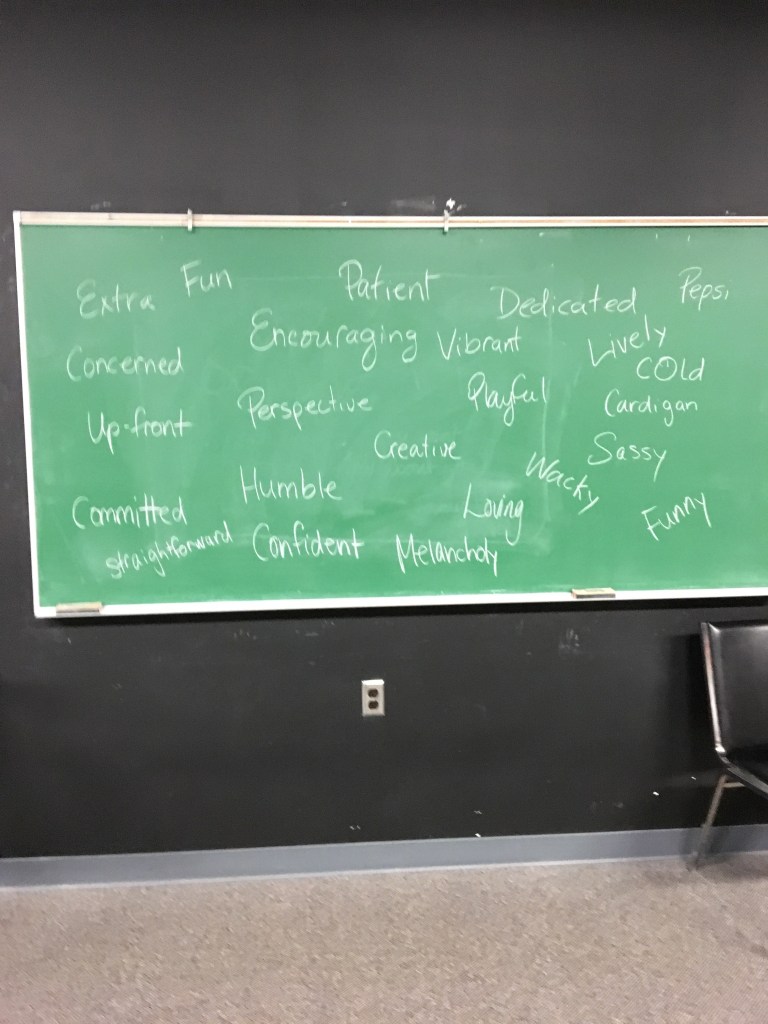 Extra Fun Patient Dedicated Pepsi
Concerned Encouraging Vibrant Lively
COld
Up-front Perspective Playful Cardigan
Creative Sassy
Humble Wacky
Committed Loving Funny
straightforward Confident Melancholy